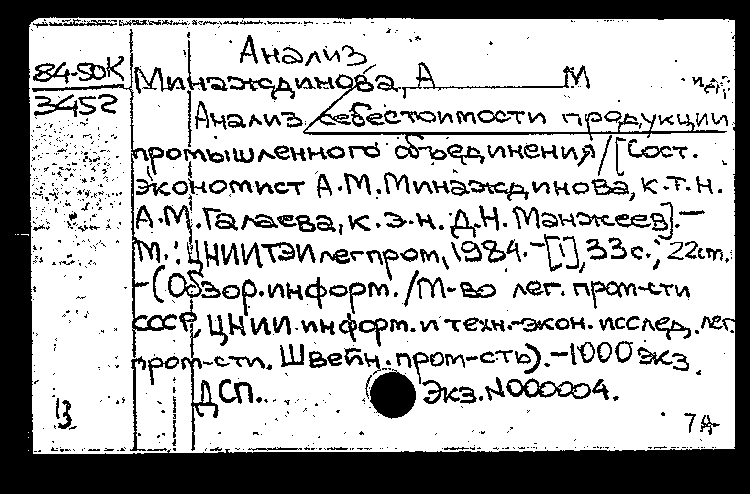 Анализ
84-50К Минаждинова, А М
3452
Анализ себестоимости продукции
промышленного объединения / [Сост.
экономист А.М.Минаждинова, к.т.н.
А.М.Галаева, к.э.н. Д.Н. Манжеев]. –
М.: ЦНИИТЭИлегпром, 1984. – [1], 33 с.; 22 см.
– (Обзор.информ. / М-во лег. пром-сти
СССР, ЦНИИ информ. и техн.-экон. исслед. лег.
пром-сти. Швейн. пром-сть). – 1000 экз.
ДСП. Экз. N000004.
13
7А-